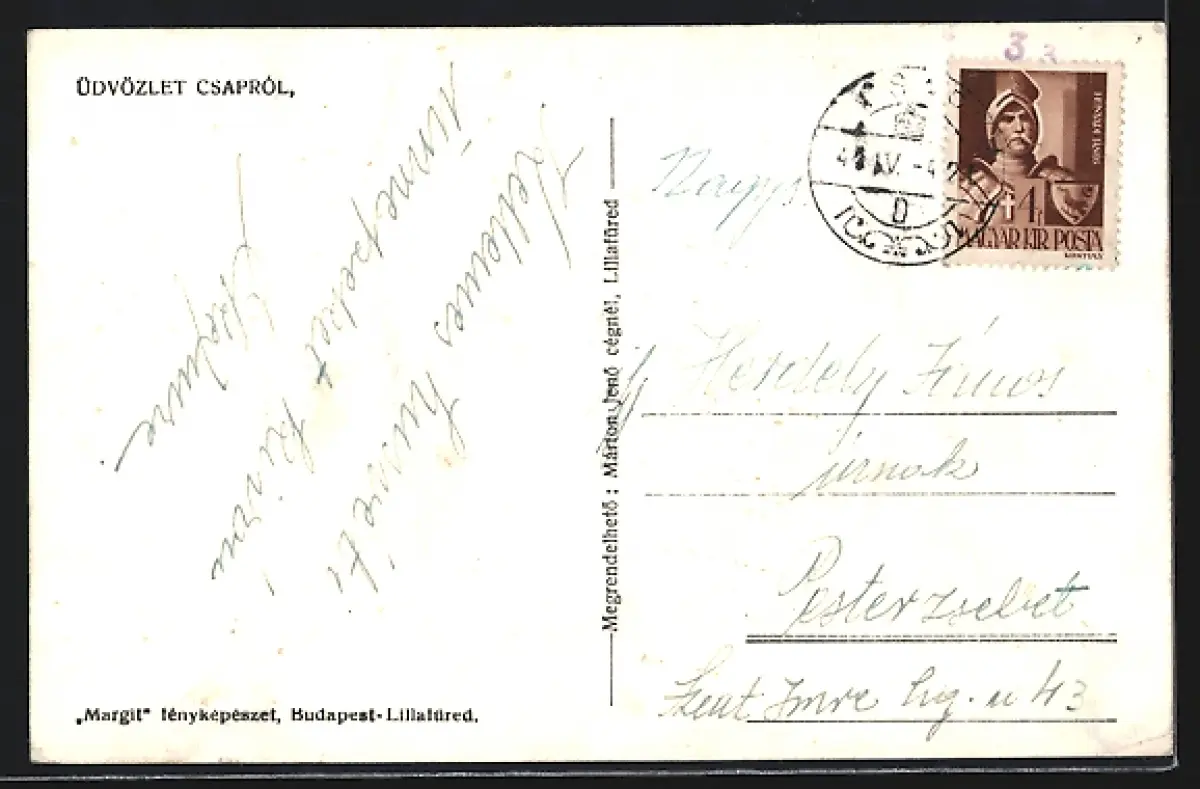 ÜDVÖZLET CSAPRÓL,
Kellemes húsvéti
ünnepeket kíván
„Margit" fényképészet, Budapest-Lillafüred.
Megrendelhető: Márton Jenő cégnél, Lillafüred
3
CSAP
D
HUNYADI JÁNOS
4f
MAGYAR KIR. POSTA
Nagys.
Herdely János
úrnak
Pesterzsebet
Szent Imre hg. u 43